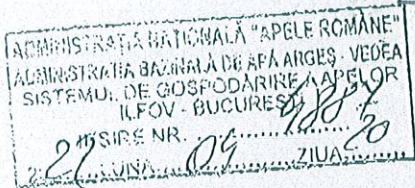 ADMINISTRAȚIA NAȚIONALĂ "APELE ROMÂNE"
ADMINISTRAȚIA BAZINALĂ DE APĂ ARGEȘ - VEDEA
SISTEMUL DE GOSPODĂRIRE A APELOR
ILFOV - BUCUREȘTI
IEȘIRE NR.
LUNA 09 ZIUA 20